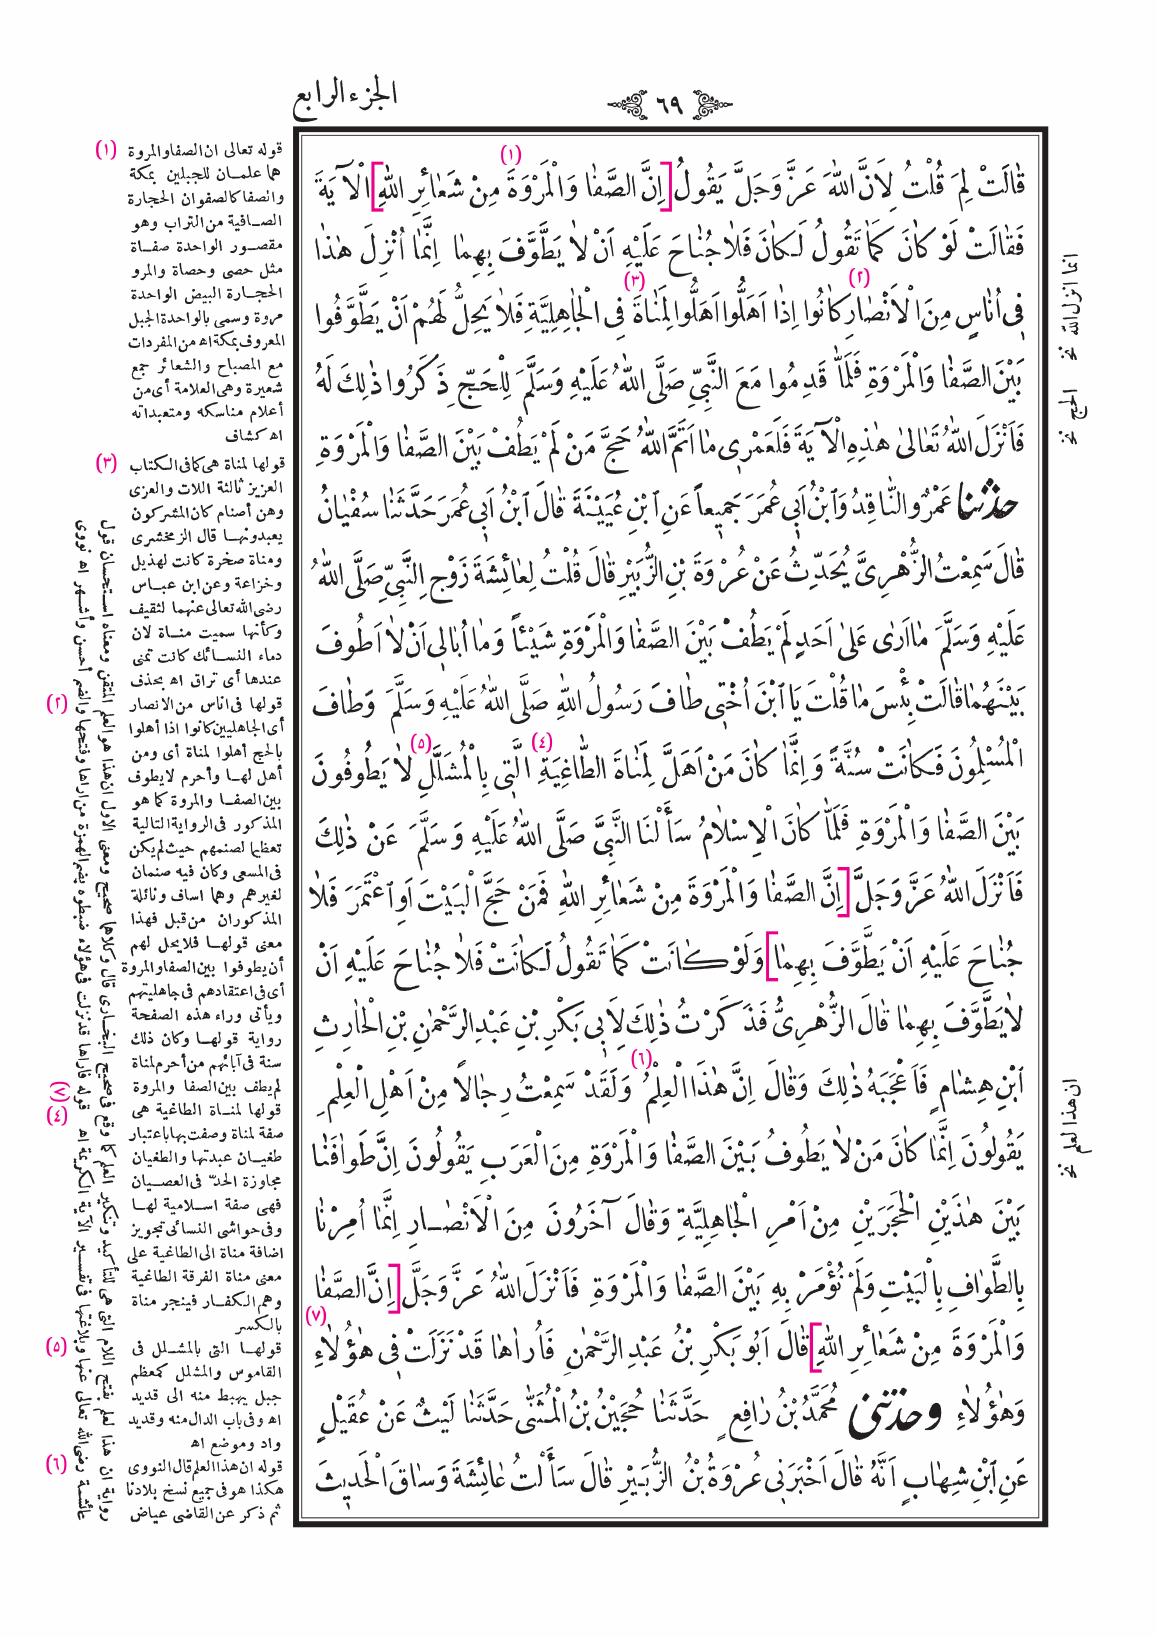 الجزء الرابع
٦٩
قَالَتْ لِمَ قُلْتُ لِاَنَّ اللّٰهَ عَزَّ وَجَلَّ يَقُولُ [اِنَّ الصَّفَا وَالْمَرْوَةَ (١) مِنْ شَعَائِرِ اللّٰهِ] الْآيَةَ
فَقَالَتْ لَوْ كَانَ كَمَا تَقُولُ لَكَانَ فَلَا جُنَاحَ عَلَيْهِ اَنْ لَا يَطَّوَّفَ بِهِمَا اِنَّمَا اُنْزِلَ هٰذَا
فِى اُنَاسٍ مِنَ الْاَنْصَارِ (٢) كَانُوا اِذَا اَهَلُّوا اَهَلُّوا لِمَنَاةَ (٣) فِى الْجَاهِلِيَّةِ فَلَا يَحِلُّ لَهُمْ اَنْ يَطَّوَّفُوا
بَيْنَ الصَّفَا وَالْمَرْوَةِ فَلَمَّا قَدِمُوا مَعَ النَّبِىِّ صَلَّى اللّٰهُ عَلَيْهِ وَسَلَّمَ لِلْحَجِّ ذَكَرُوا ذٰلِكَ لَهُ
فَاَنْزَلَ اللّٰهُ تَعَالٰى هٰذِهِ الْآيَةَ فَلَعَمْرِى مَا اَتَمَّ اللّٰهُ حَجَّ مَنْ لَمْ يَطُفْ بَيْنَ الصَّفَا وَالْمَرْوَةِ
حدثنا عَمْرٌو النَّاقِدُ وَابْنُ اَبِى عُمَرَ جَمِيعاً عَنِ ابْنِ عُيَيْنَةَ قَالَ ابْنُ اَبِى عُمَرَ حَدَّثَنَا سُفْيَانُ
قَالَ سَمِعْتُ الزُّهْرِىَّ يُحَدِّثُ عَنْ عُرْوَةَ بْنِ الزُّبَيْرِ قَالَ قُلْتُ لِعَائِشَةَ زَوْجِ النَّبِىِّ صَلَّى اللّٰهُ
عَلَيْهِ وَسَلَّمَ مَا اَرٰى عَلٰى اَحَدٍ لَمْ يَطُفْ بَيْنَ الصَّفَا وَالْمَرْوَةِ شَيْئاً وَمَا اُبَالِى اَنْ لَا اَطُوفَ
بَيْنَهُمَا قَالَتْ بِئْسَ مَا قُلْتَ يَا ابْنَ اُخْتِى طَافَ رَسُولُ اللّٰهِ صَلَّى اللّٰهُ عَلَيْهِ وَسَلَّمَ وَطَافَ
الْمُسْلِمُونَ فَكَانَتْ سُنَّةً وَاِنَّمَا كَانَ مَنْ اَهَلَّ لِمَنَاةَ الطَّاغِيَةِ (٤) الَّتِى بِالْمُشَلَّلِ (٥) لَا يَطُوفُونَ
بَيْنَ الصَّفَا وَالْمَرْوَةِ فَلَمَّا كَانَ الْاِسْلَامُ سَأَلْنَا النَّبِىَّ صَلَّى اللّٰهُ عَلَيْهِ وَسَلَّمَ عَنْ ذٰلِكَ
فَاَنْزَلَ اللّٰهُ عَزَّ وَجَلَّ [اِنَّ الصَّفَا وَالْمَرْوَةَ مِنْ شَعَائِرِ اللّٰهِ فَمَنْ حَجَّ الْبَيْتَ اَوِ اعْتَمَرَ فَلَا
جُنَاحَ عَلَيْهِ اَنْ يَطَّوَّفَ بِهِمَا] وَلَوْ كَانَتْ كَمَا تَقُولُ لَكَانَتْ فَلَا جُنَاحَ عَلَيْهِ اَنْ
لَا يَطَّوَّفَ بِهِمَا قَالَ الزُّهْرِىُّ فَذَكَرْتُ ذٰلِكَ لِاَبِى بَكْرِ بْنِ عَبْدِ الرَّحْمٰنِ بْنِ الْحَارِثِ
ابْنِ هِشَامٍ فَاَعْجَبَهُ ذٰلِكَ وَقَالَ اِنَّ هٰذَا الْعِلْمُ (٦) وَلَقَدْ سَمِعْتُ رِجَالاً مِنْ اَهْلِ الْعِلْمِ
يَقُولُونَ اِنَّمَا كَانَ مَنْ لَا يَطُوفُ بَيْنَ الصَّفَا وَالْمَرْوَةِ مِنَ الْعَرَبِ يَقُولُونَ اِنَّ طَوَافَنَا
بَيْنَ هٰذَيْنِ الْحَجَرَيْنِ مِنْ اَمْرِ الْجَاهِلِيَّةِ وَقَالَ آخَرُونَ مِنَ الْاَنْصَارِ اِنَّمَا اُمِرْنَا
بِالطَّوَافِ بِالْبَيْتِ وَلَمْ نُؤْمَرْ بِهِ بَيْنَ الصَّفَا وَالْمَرْوَةِ فَاَنْزَلَ اللّٰهُ عَزَّ وَجَلَّ [اِنَّ الصَّفَا
وَالْمَرْوَةَ مِنْ شَعَائِرِ اللّٰهِ] قَالَ اَبُو بَكْرِ بْنُ عَبْدِ الرَّحْمٰنِ فَاُرَاهَا قَدْ نَزَلَتْ فِى هٰؤُلَاءِ (٧)
وَهٰؤُلَاءِ وحدثنى مُحَمَّدُ بْنُ رَافِعٍ حَدَّثَنَا حُجَيْنُ بْنُ الْمُثَنّٰى حَدَّثَنَا لَيْثٌ عَنْ عُقَيْلٍ
عَنِ ابْنِ شِهَابٍ اَنَّهُ قَالَ اَخْبَرَنِى عُرْوَةُ بْنُ الزُّبَيْرِ قَالَ سَأَلْتُ عَائِشَةَ وَسَاقَ الْحَدِيثَ
انما انزل الله نخ
الحج نخ
ان هذا لعلم نخ
(١) قوله تعالى ان الصفا والمروة
هما علمان للجبلين بمكة
والصفا كالصفوان الحجارة
الصافية من التراب وهو
مقصور الواحدة صفاة
مثل حصى وحصاة والمرو
الحجارة البيض الواحدة
مروة وسمى بالواحدة الجبل
المعروف بمكة اه من المفردات
مع المصباح والشعائر جمع
شعيرة وهى العلامة أى من
أعلام مناسكه ومتعبداته
اه كشاف
(٣) قولها لمناة هى كما فى الكتاب
العزيز ثالثة اللات والعزى
وهن أصنام كان المشركون
يعبدونها قال الزمخشرى
ومناة صخرة كانت لهذيل
وخزاعة وعن ابن عباس
رضى الله تعالى عنهما لثقيف
وكأنها سميت مناة لان
دماء النسائك كانت تمنى
عندها أى تراق اه بحذف
(٢) قولها فى اناس من الانصار
أى الجاهليين كانوا اذا أهلوا
بالحج أهلوا لمناة أى ومن
أهل لها وأحرم لا يطوف
بين الصفا والمروة كما هو
المذكور فى الرواية التالية
تعظيما لصنمهم حيث لم يكن
فى المسعى وكان فيه صنمان
لغيرهم وهما اساف ونائلة
المذكوران من قبل فهذا
معنى قولها فلا يحل لهم
أن يطوفوا بين الصفا والمروة
أى فى اعتقادهم فى جاهليتهم
ويأتى وراء هذه الصفحة
رواية قولها وكان ذلك
سنة فى آبائهم من أحرم لمناة
لم يطف بين الصفا والمروة
(٤) قولها لمناة الطاغية هى
صفة لمناة وصفت بها باعتبار
طغيان عبدتها والطغيان
مجاوزة الحدّ فى العصيان
فهى صفة اسلامية لها
وفى حواشى النسائى تجويز
اضافة مناة الى الطاغية على
معنى مناة الفرقة الطاغية
وهم الكفار فينجر مناة
بالكسر
(٥) قولها التى بالمشلل فى
القاموس والمشلل كمعظم
جبل يهبط منه الى قديد
اه وفى باب الدال منه وقديد
واد وموضع اه
(٦) قوله ان هذا العلم قال النووى
هكذا هو فى جميع نسخ بلادنا
ثم ذكر عن القاضى عياض
رواية ان هذا لعلم بفتح اللام التى هى للتأكيد وتنكير العلم كما وقع فى صحيح البخارى قال وكلاهما صحيح ومعنى الاول ان هذا هو العلم المتقن ومعناه استحسان قول
عائشة رضى الله تعالى عنها وبلاغتها فى تفسير الآية الكريمة اه (٧) قوله فاراها قد نزلت فى هؤلاء ضبطوه بضم الهمزة من اراها وفتحها والضم أحسن وأشهر اه نووى